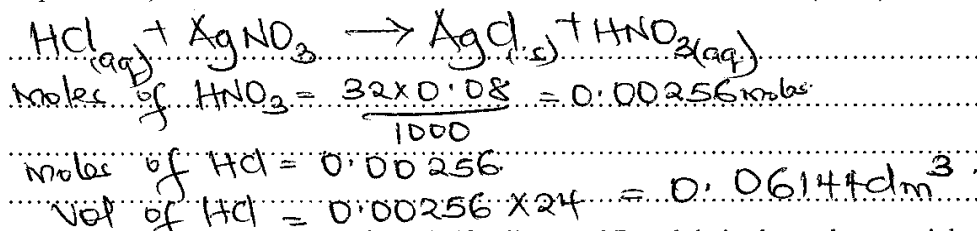 HCl(aq) + AgNO3 → AgCl(s) + HNO3(aq)
Moles of HNO3 = 32×0.08/1000 = 0.00256 moles
moles of HCl = 0.00256
Vol of HCl = 0.00256 × 24 = 0.06144dm³.